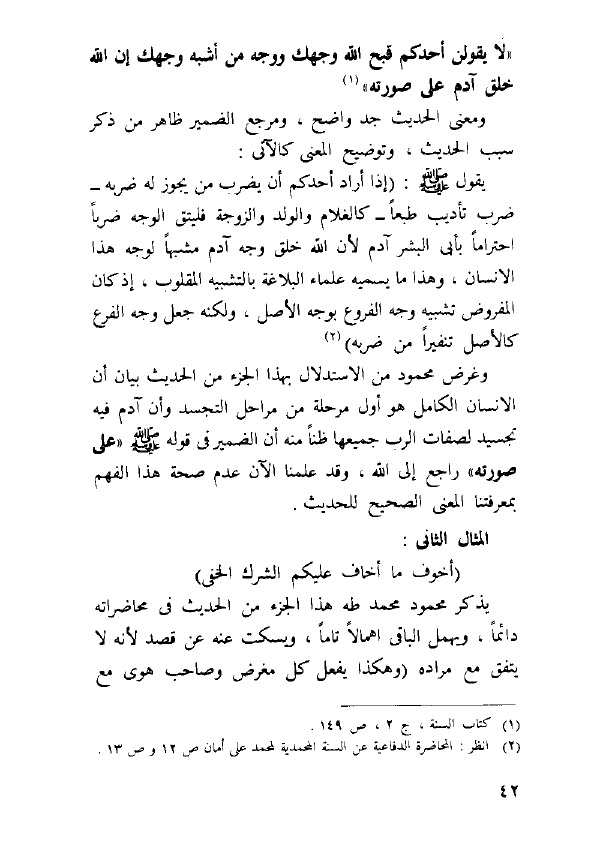 «لا يقولن أحدكم قبح الله وجهك ووجه من أشبه وجهك إن الله
خلق آدم على صورته» (١)
ومعنى الحديث جد واضح ، ومرجع الضمير ظاهر من ذكر
سبب الحديث ، وتوضيح المعنى كالآتى :
يقول ﷺ : (إذا أراد أحدكم أن يضرب من يجوز له ضربه ـ
ضرب تأديب طبعاً ـ كالغلام والولد والزوجة فليتق الوجه ضرباً
احتراماً بأبى البشر آدم لأن الله خلق وجه آدم مشبهاً لوجه هذا
الانسان ، وهذا ما يسميه علماء البلاغة بالتشبيه المقلوب ، إذ كان
المفروض تشبيه وجه الفروع بوجه الأصل ، ولكنه جعل وجه الفرع
كالأصل تنفيراً من ضربه) (٢)
وغرض محمود من الاستدلال بهذا الجزء من الحديث بيان أن
الانسان الكامل هو أول مرحلة من مراحل التجسد وأن آدم فيه
تجسيد لصفات الرب جميعها ظناً منه أن الضمير فى قوله ﷺ «على
صورته» راجع إلى الله ، وقد علمنا الآن عدم صحة هذا الفهم
بمعرفتنا المعنى الصحيح للحديث .
المثال الثانى :
(أخوف ما أخاف عليكم الشرك الخفى)
يذكر محمود محمد طه هذا الجزء من الحديث فى محاضراته
دائماً ، ويهمل الباقى اهمالاً تاماً ، ويسكت عنه عن قصد لأنه لا
يتفق مع مراده (وهكذا يفعل كل مغرض وصاحب هوى مع
(١) كتاب السنة ، ج ٢ ، ص ١٤٩ .
(٢) انظر : المحاضرة الدفاعية عن السنة المحمدية لمحمد على أمان ص ١٢ و ص ١٣ .
٤٢